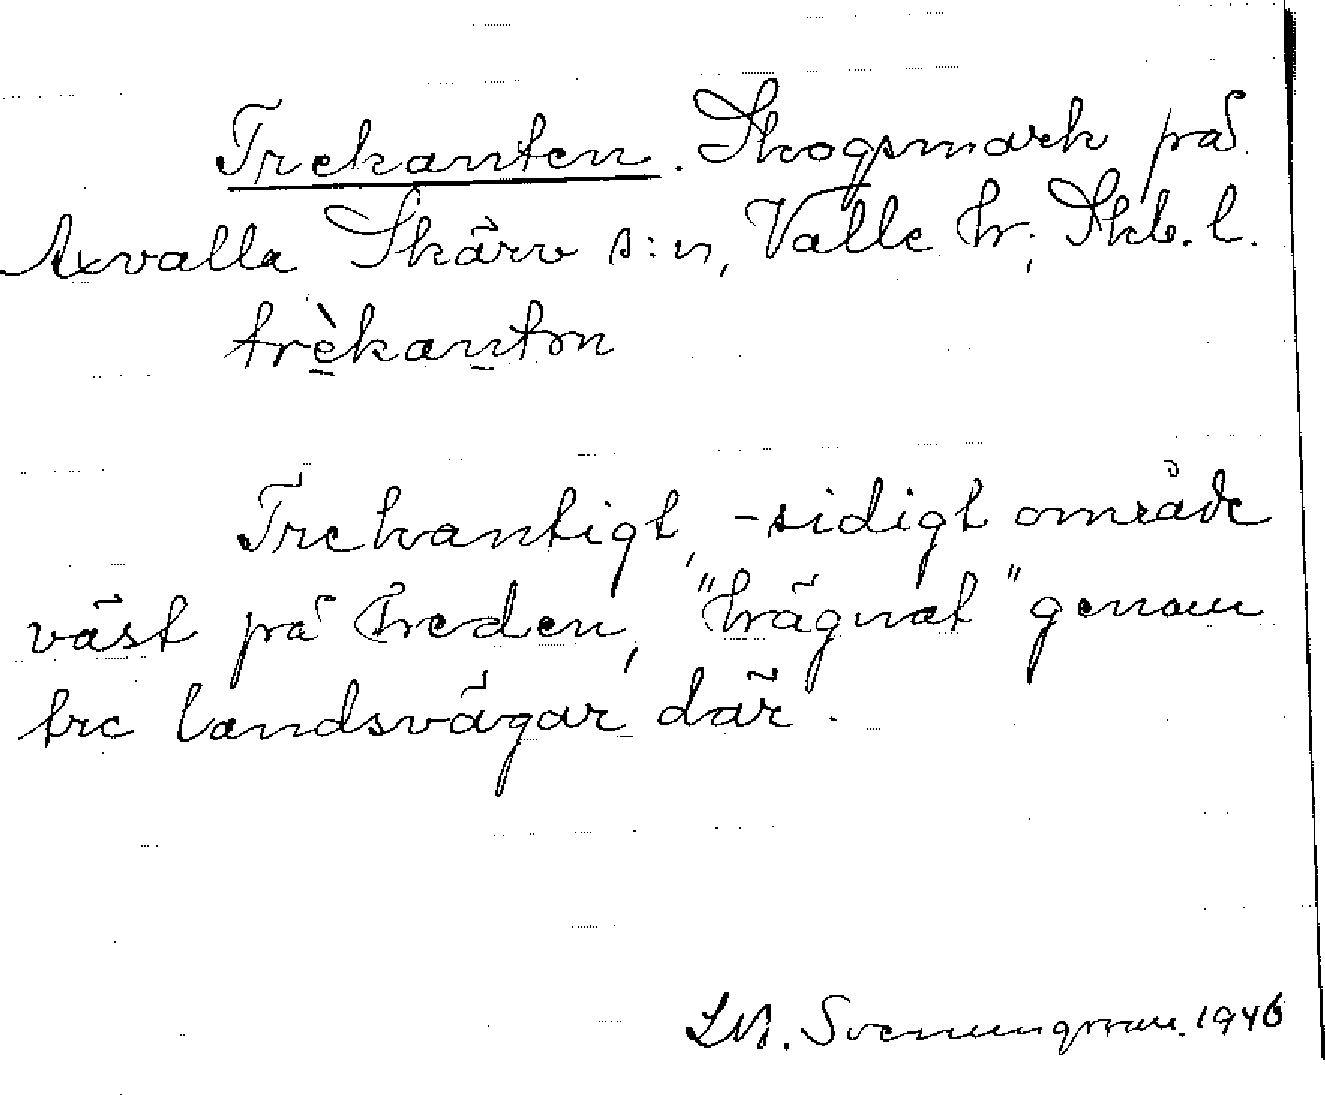 Trekanten. Skogsmark på
Axvalla Skärv s:n, Valle hr; Skb. l.
trèkantɔn
Trekantigt, -sidigt område
väst på Freden, "hägnat" genom
tre landsvägar där.
Svenungsson. 1946